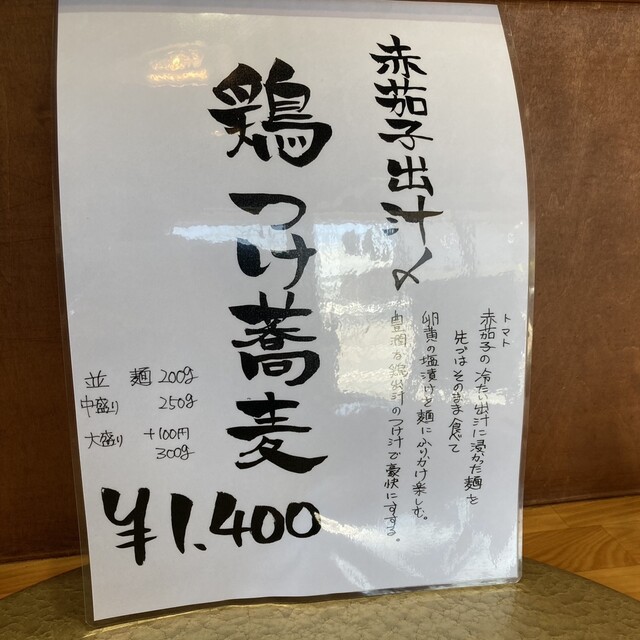 赤茄子出汁〆
鶏つけ蕎麦
トマト
赤茄子の冷たい出汁に浸かた麺を
先づはそのまま食べて
卵黄の塩漬けを麺にふりかけ楽しむ。
豊潤な鶏出汁のつけ汁で豪快にすする。
並 麺 200g
中盛り 250g
大盛り +100円
300g
¥1.400